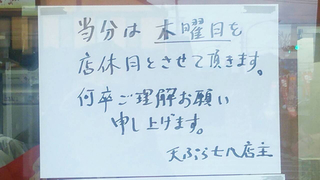 当分は 木曜日を
店休日とさせて頂きます。
何卒ご理解お願い
申し上げます。
天ぷら七八店主